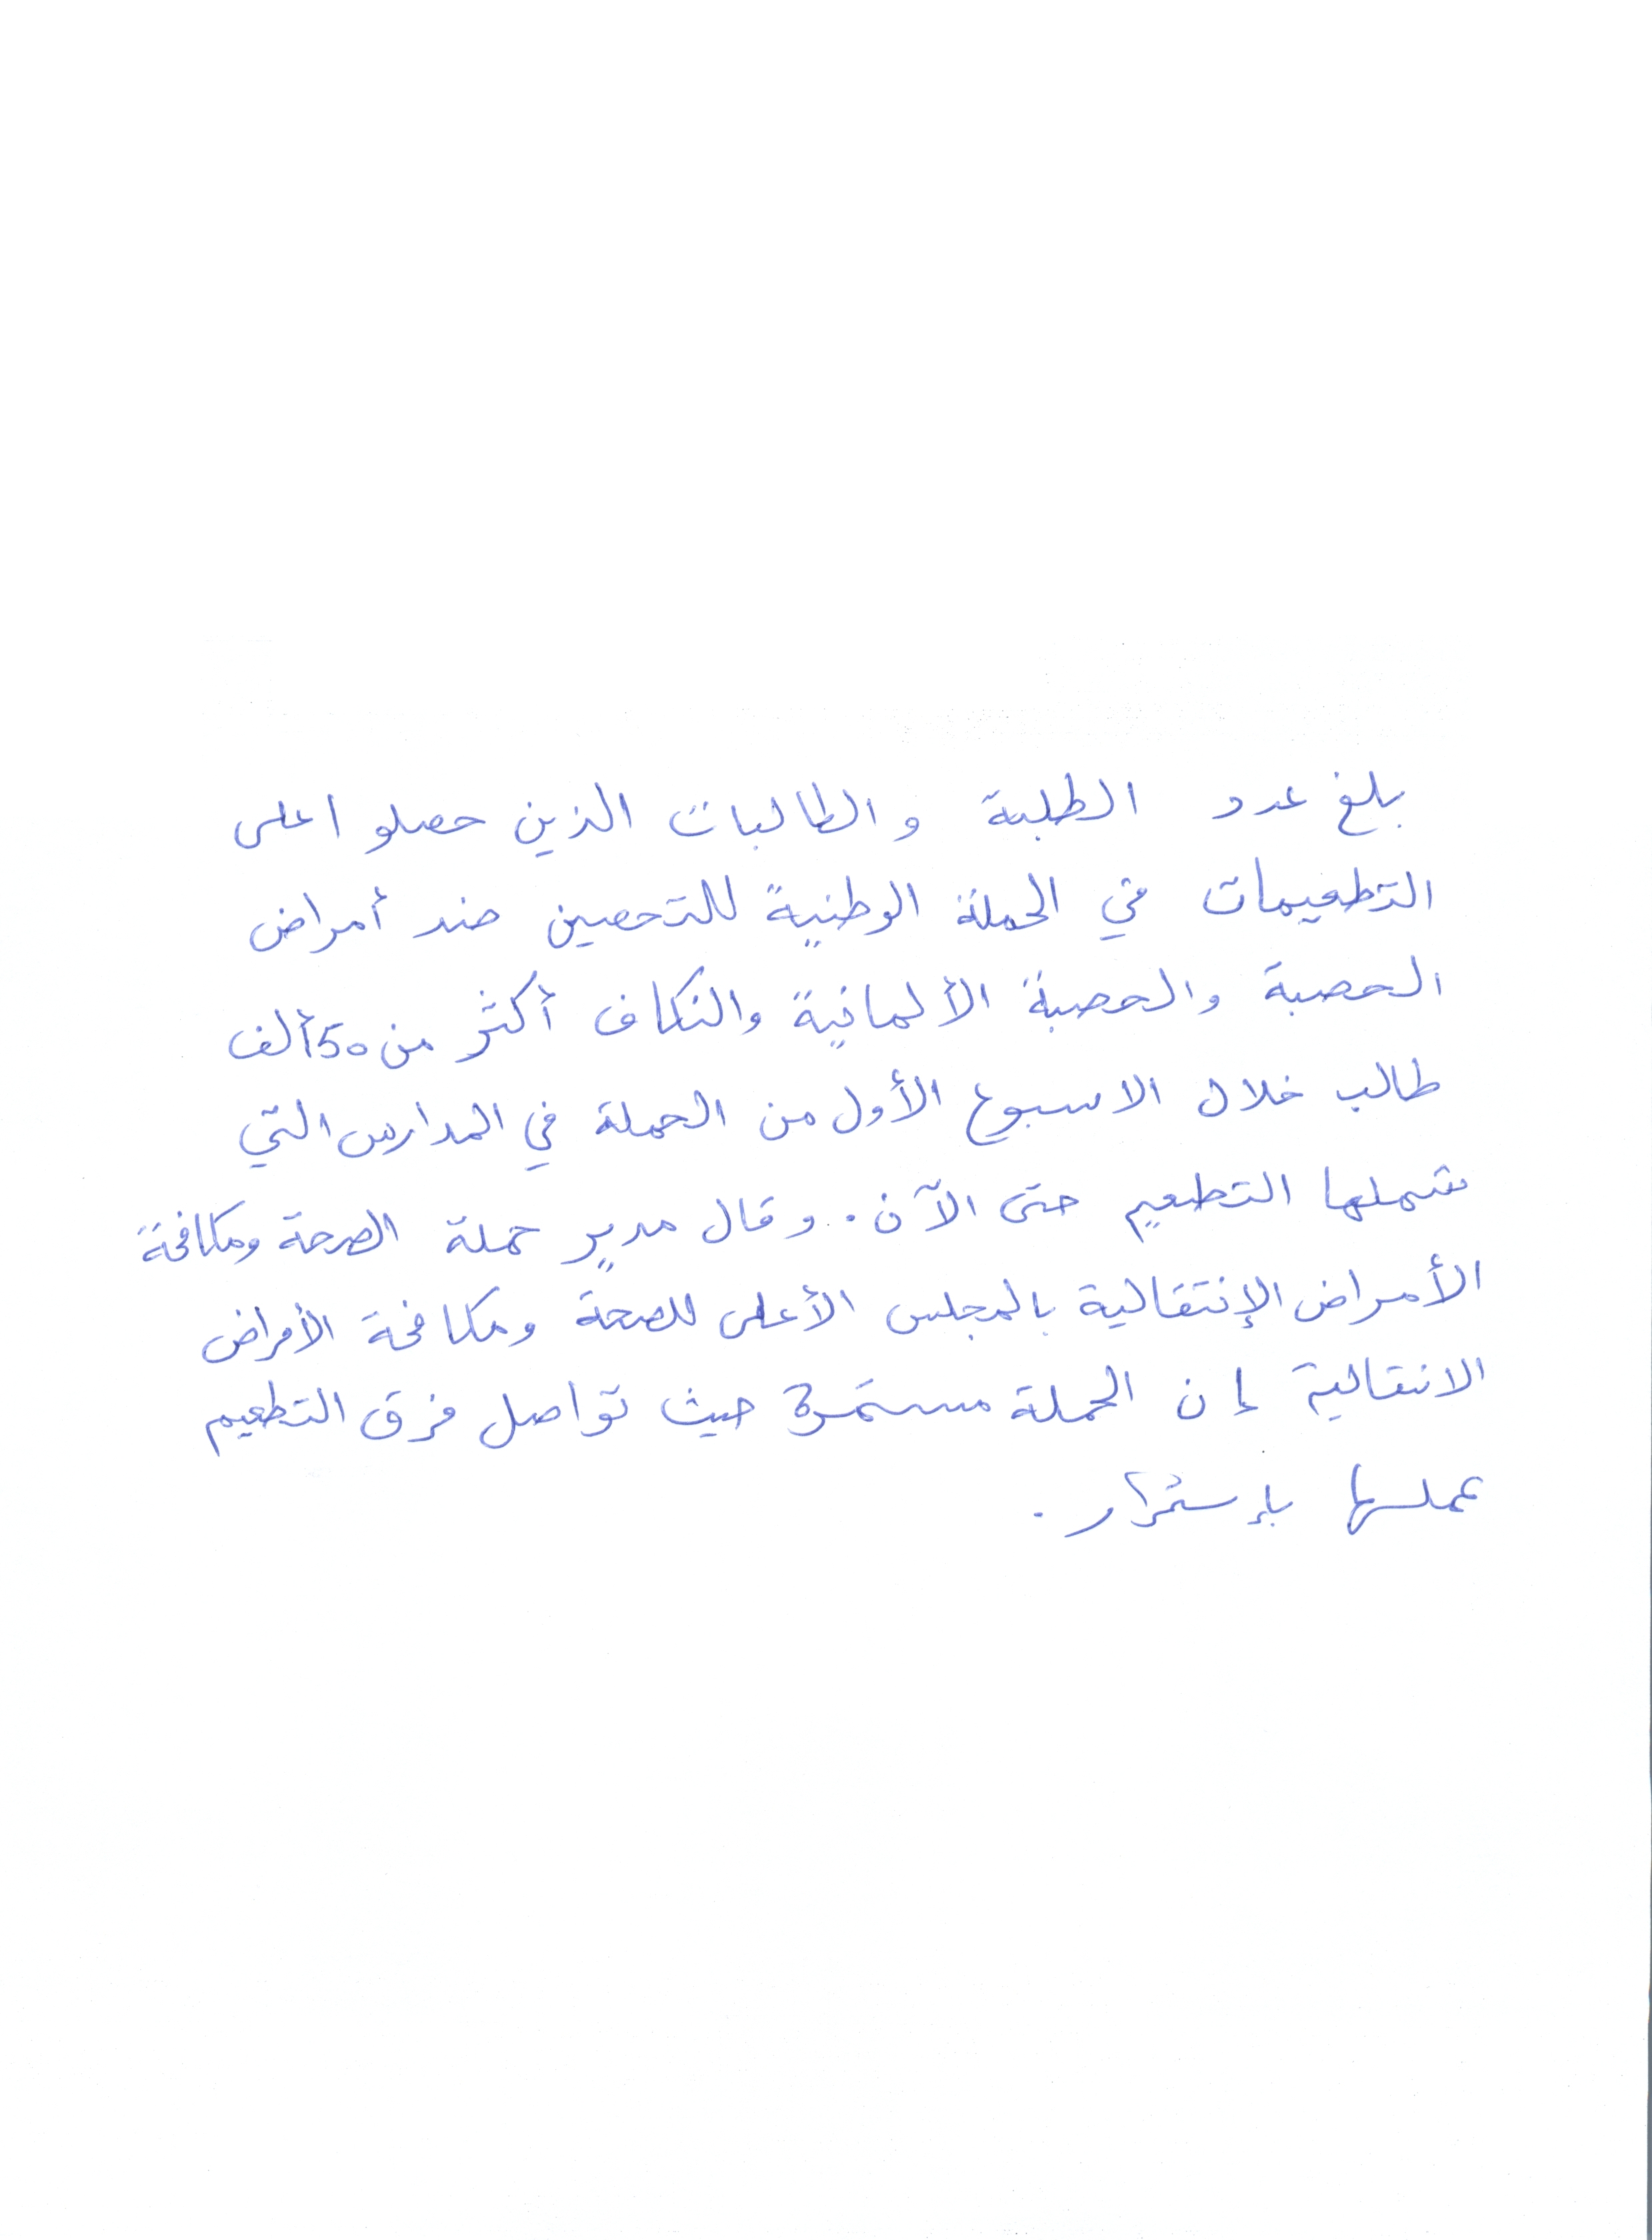 بلغ عدد الطلبة والطالبات الذين حصلو اعلى
التطعيمات في الحملة الوطنية للتحصين ضد أمراض
الحصبة والحصبة الألمانية والنكاف أكثر من 50 ألف
طالب خلال الاسبوع الأول من الحملة في المدارس التي
شملها التطعيم حتى الآن. وقال مدير حملة الصحة ومكافحة
الأمراض الإنتقالية بالمجلس الأعلى للصحة ومكافحة الأمراض
الانتقالية إن الحملة مستمرة حيث تواصل فرق التطعيم
عملها بإستمرار.